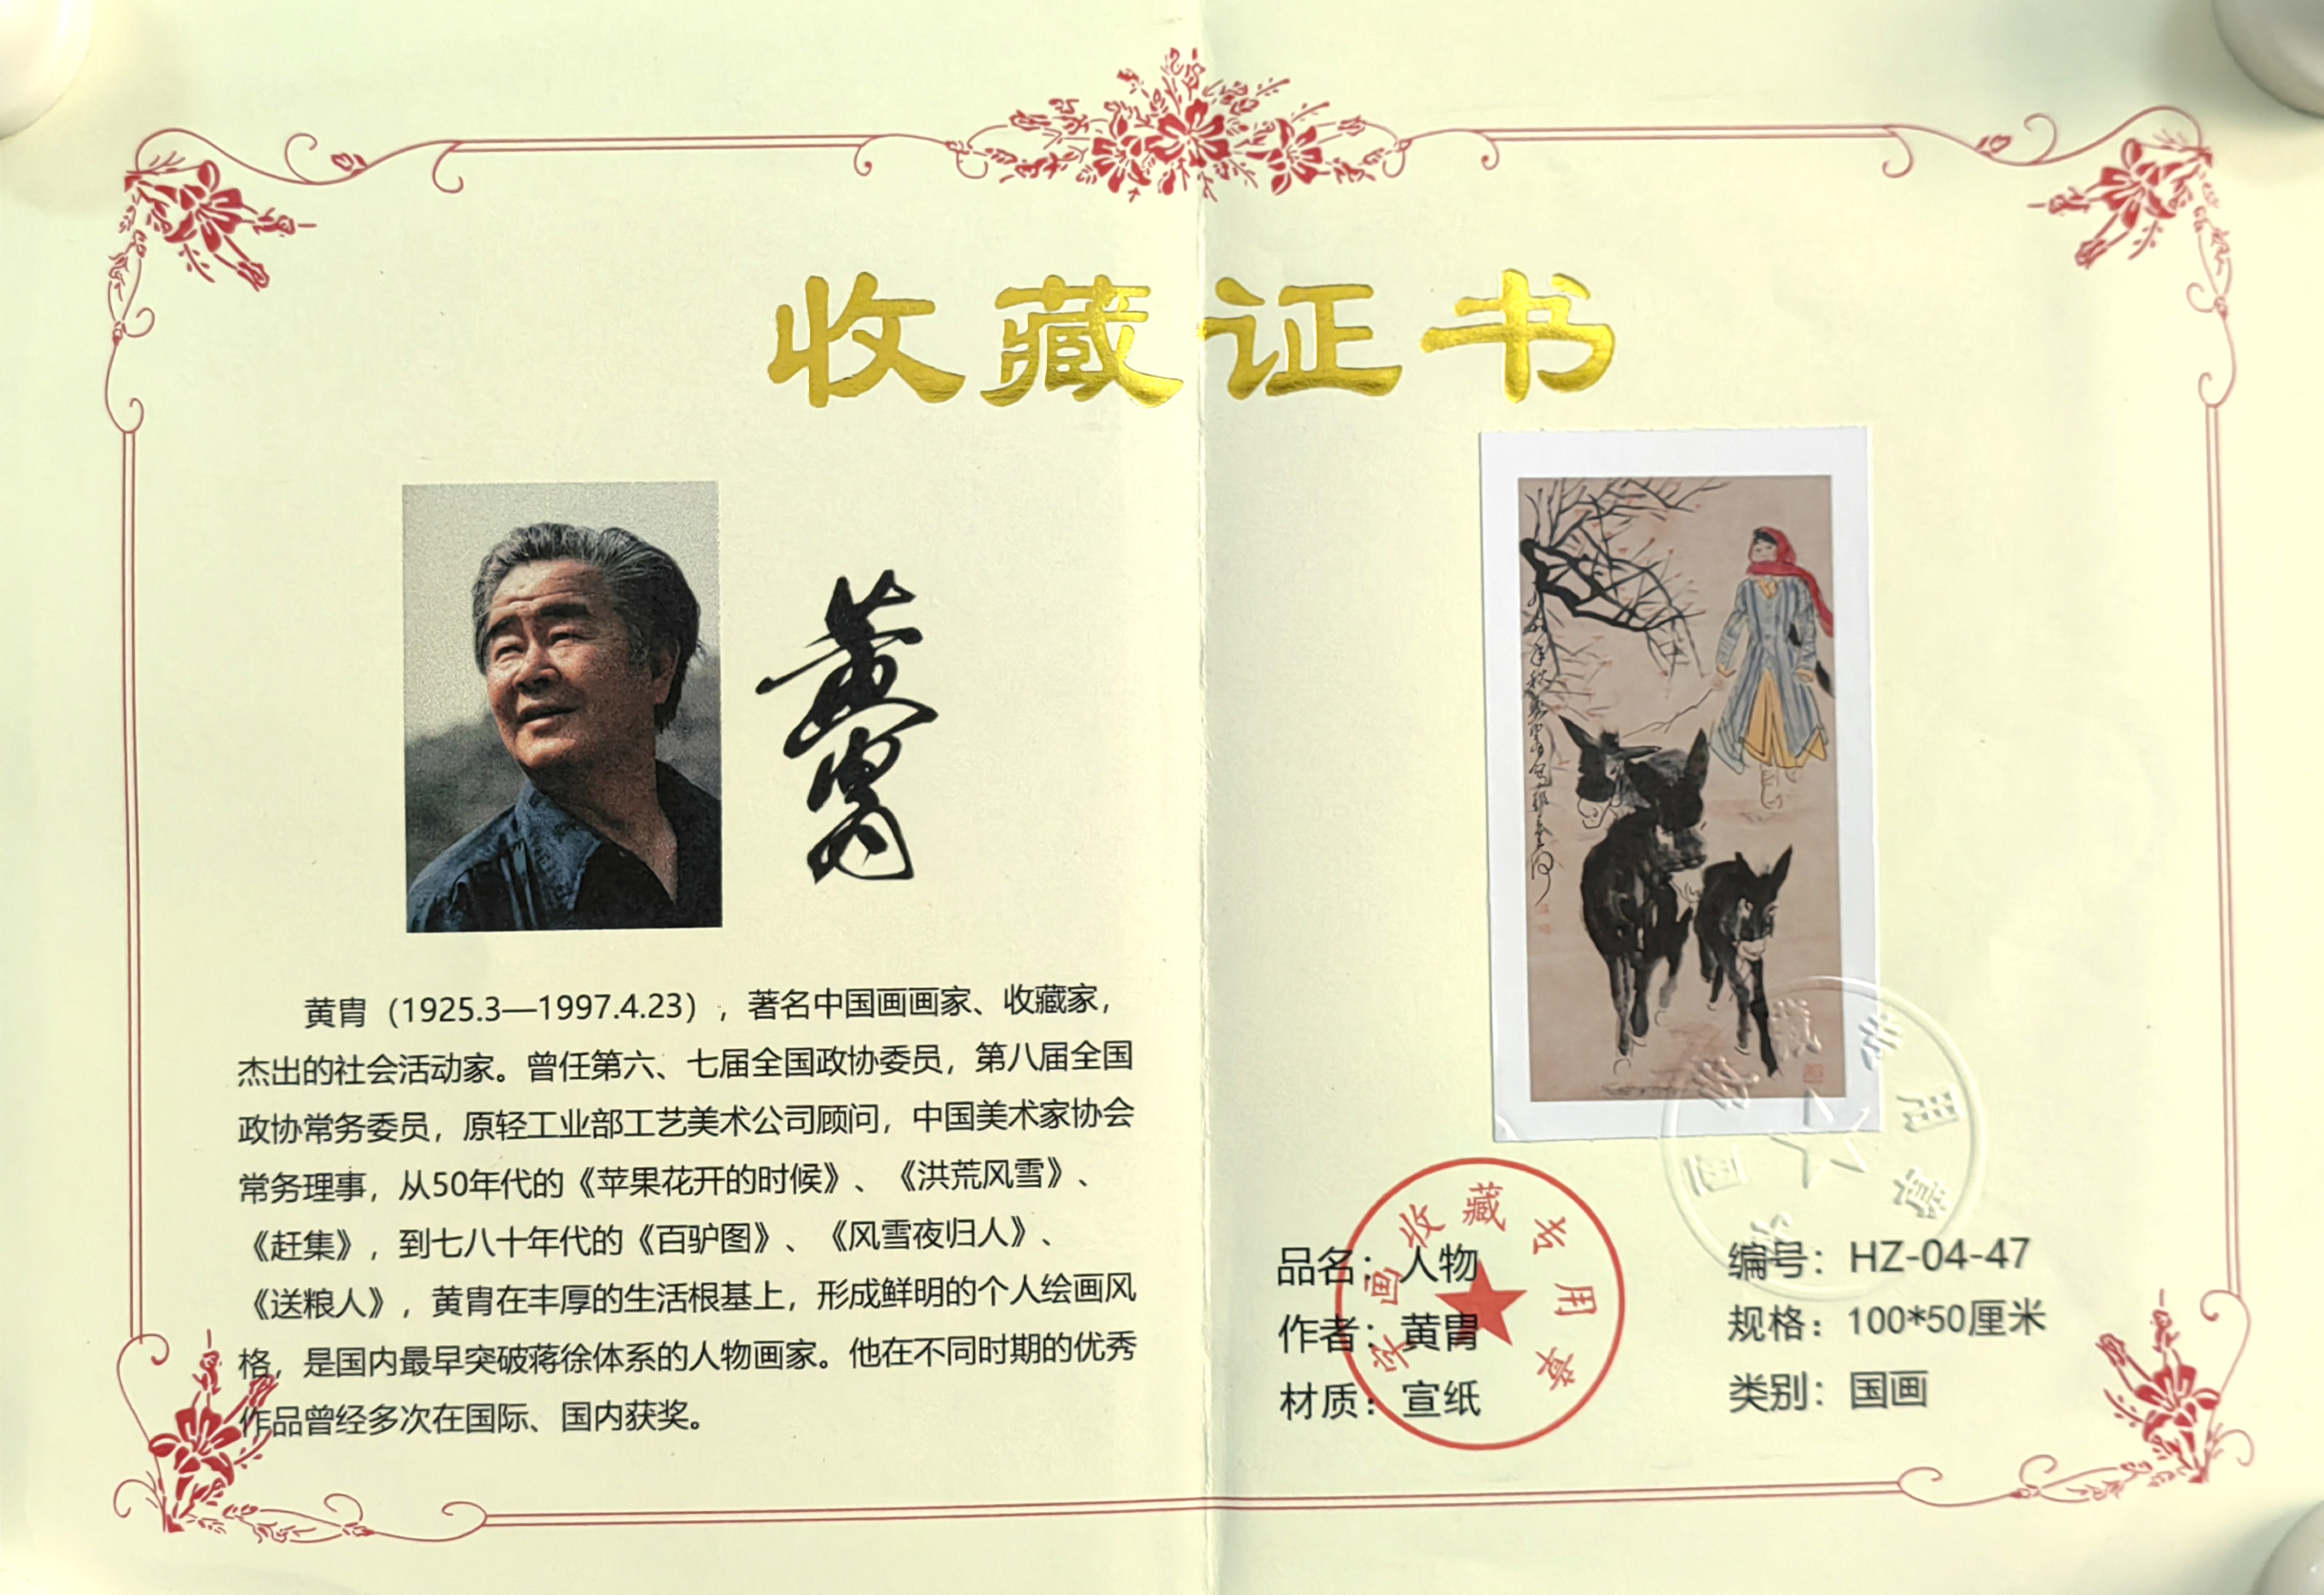 收藏证书
黄胄
黄胄（1925.3—1997.4.23），著名中国画画家、收藏家，
杰出的社会活动家。曾任第六、七届全国政协委员，第八届全国
政协常务委员，原轻工业部工艺美术公司顾问，中国美术家协会
常务理事，从50年代的《苹果花开的时候》、《洪荒风雪》、
《赶集》，到七八十年代的《百驴图》、《风雪夜归人》、
《送粮人》，黄胄在丰厚的生活根基上，形成鲜明的个人绘画风
格，是国内最早突破蒋徐体系的人物画家。他在不同时期的优秀
作品曾经多次在国际、国内获奖。
品名：人物
作者：黄胄
材质：宣纸
编号：HZ-04-47
规格：100*50厘米
类别：国画
字画收藏专用章
字画收藏专用章